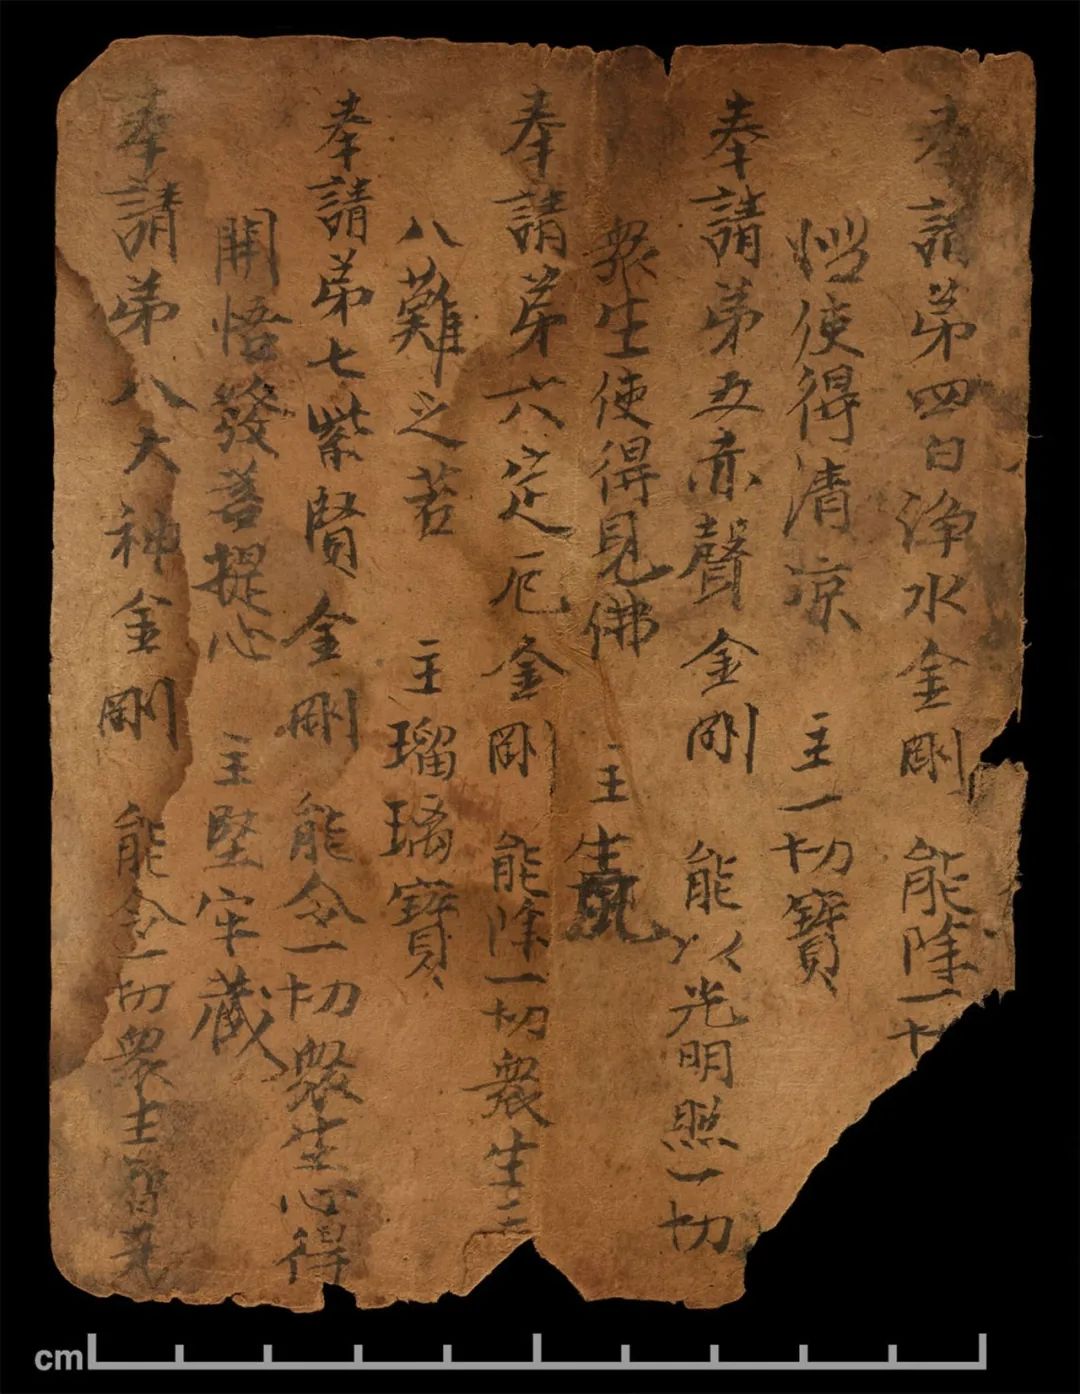 奉請苐四白淨水金剛 能除一切
惱使得清凉 主一切寶
奉請苐五赤聲金剛 能以光明照一切
衆生使得見佛 主生風
奉請苐六定厄金剛 能除一切衆生三
八難之苦 主瑠璃寶
奉請苐七紫賢金剛 能令一切衆生心得
開悟發菩提心 主堅牢藏
奉請苐八大神金剛 能令一切衆主智
cm